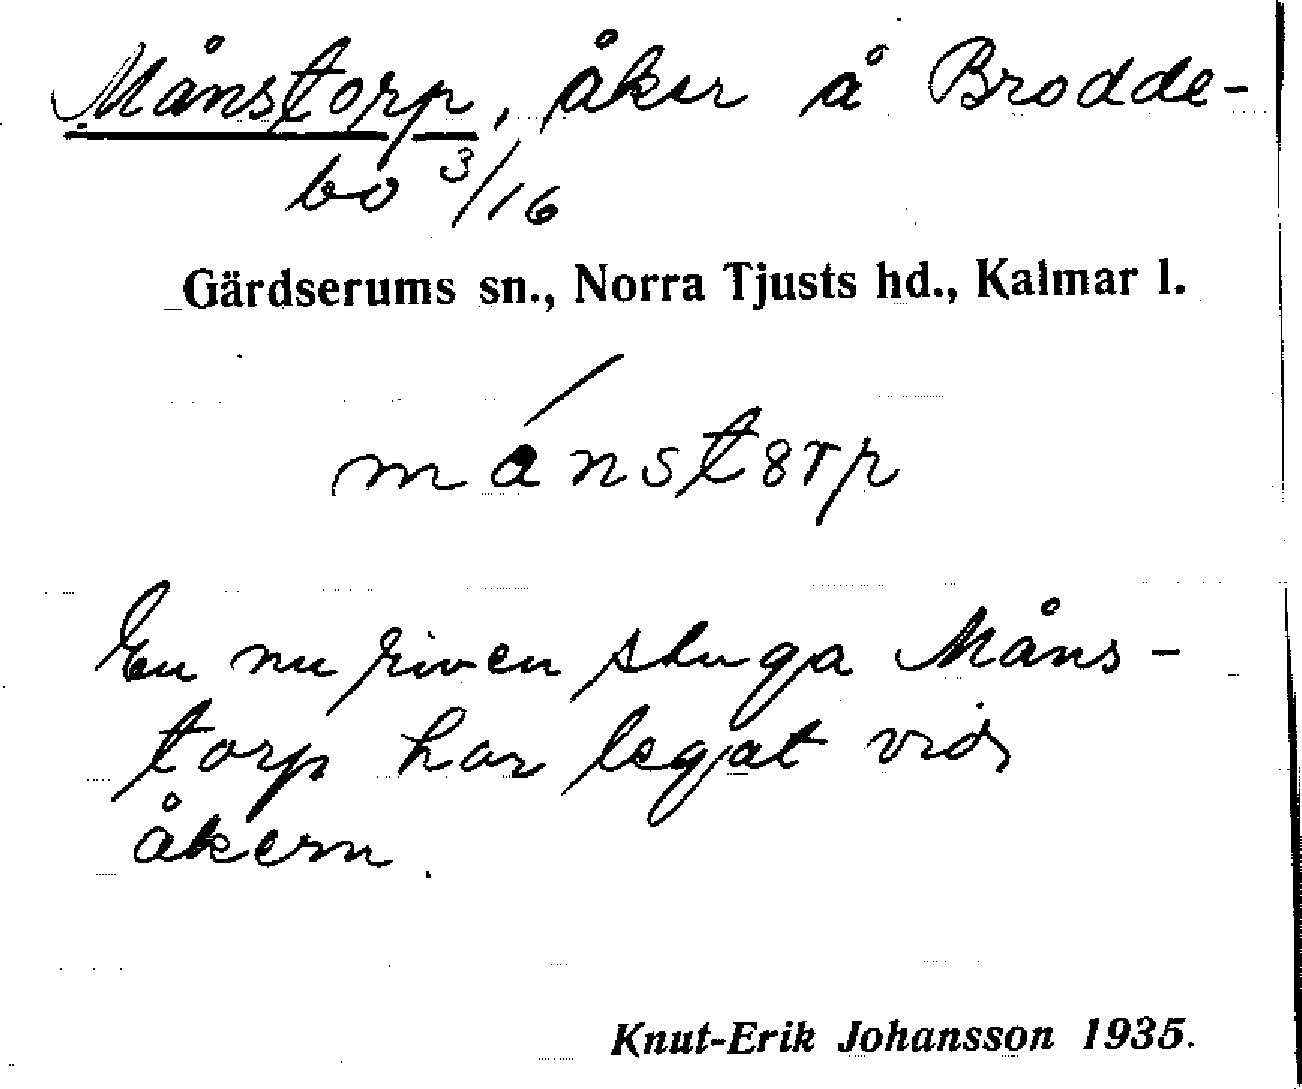 Månstorp, åker å Brodde-
bo 3/16
Gärdserums sn., Norra Tjusts hd., Kalmar l.
mánst8rp
En nu riven stuga Måns-
torp har legat vid
åkern.
Knut-Erik Johansson 1935.